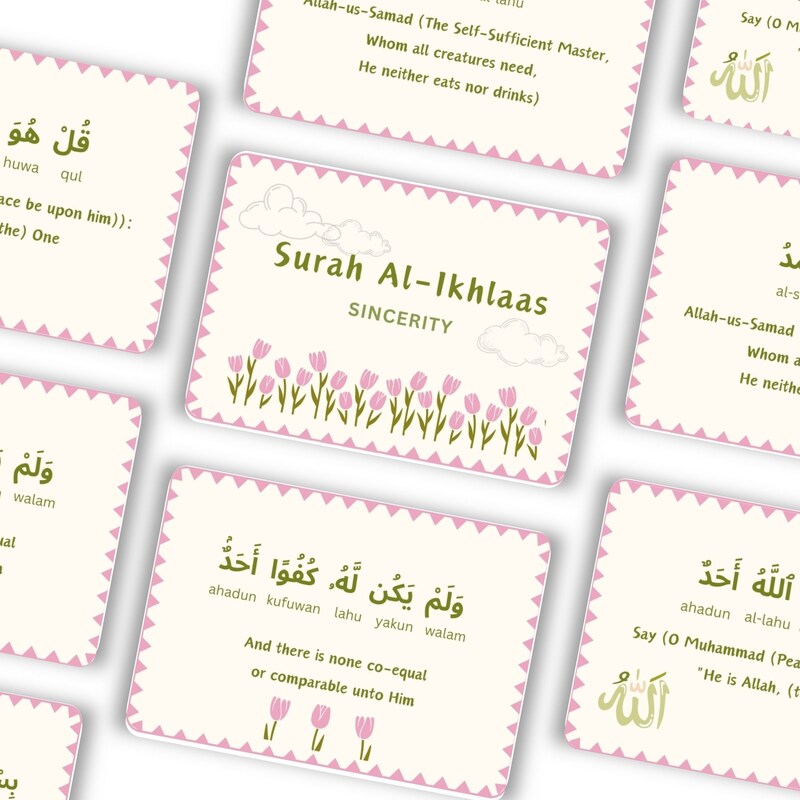 lahu
Allah-us-Samad (The Self-Sufficient Master,
Whom all creatures need,
He neither eats nor drinks)
Say (O M
الله
قُلْ هُوَ
huwa qul
ace be upon him)):
the) One
Surah Al-Ikhlaas
SINCERITY
al-s
Allah-us-Samad
Whom a
He neithe
وَلَمْ
walam
ual
وَلَمْ يَكُن لَّهُۥ كُفُوًا أَحَدٌۢ
ahadun kufuwan lahu yakun walam
And there is none co-equal
or comparable unto Him
ٱللَّهُ أَحَدٌ
ahadun al-lahu
Say (O Muhammad (Pea
"He is Allah, (t
الله